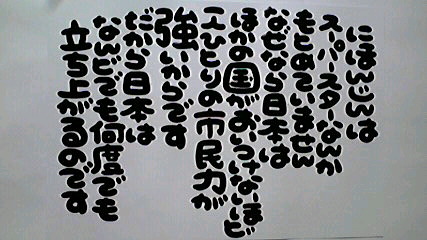 にほんじんは
スーパースターなんか
もとめていません
なぜなら日本は
ほかの国がおいつけないほど
一人ひとりの市民力が
強いからです
だから日本は
なんどでも何度でも
立ち上がるのです